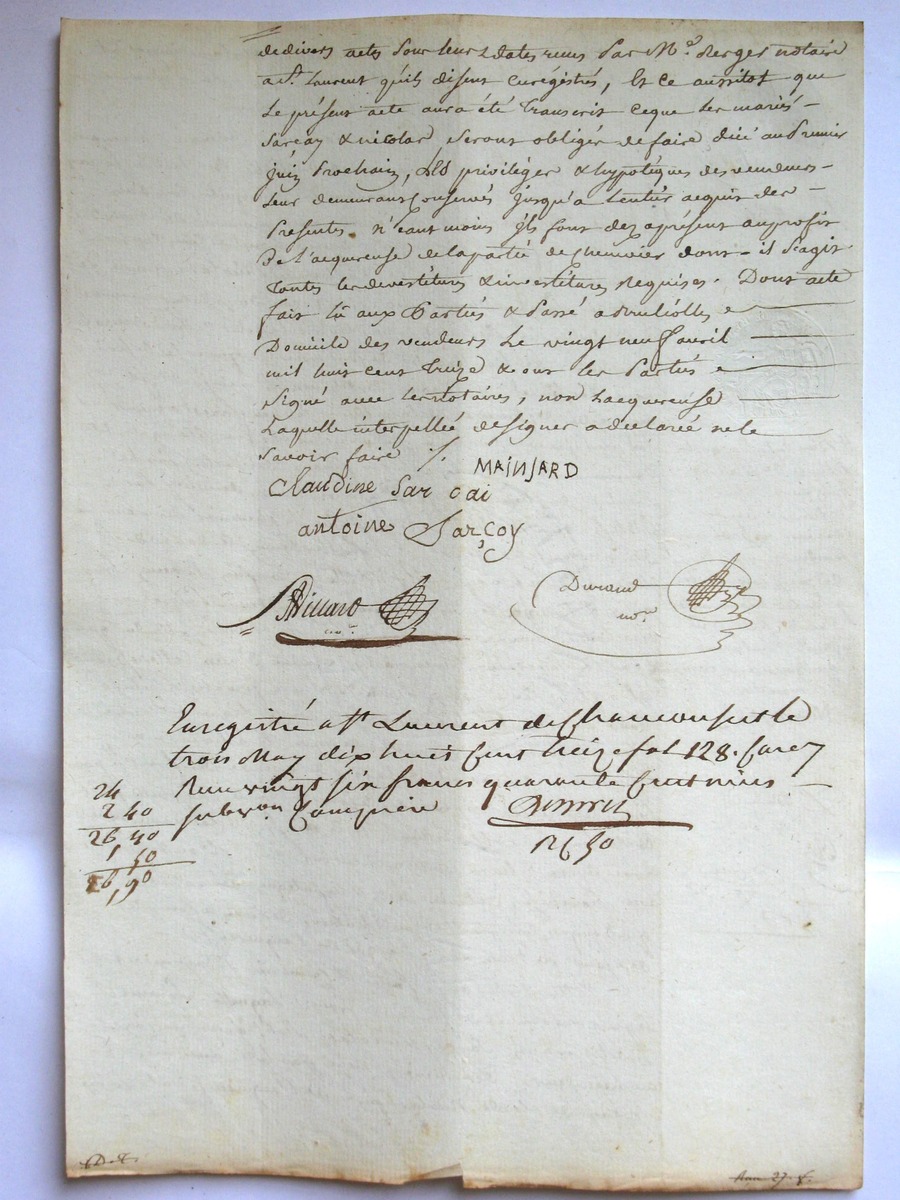 de divers actes sous leurs dates reçus par Me. Berger notaire
a St. Laurent qu'ils disent enrégistrés, Et ce aussitot que
Le présent acte aura été transcrit ce que les mariés –
Sarçay & nicolas, seront obligés de faire d'ici au Premier
juin Prochain, Les privilèges & hypotèques des vendeurs –
Leur demeurans conservés jusqu'a L'entier acquit des –
Presentes. n'eant moins ils font dez aprésent au profit
De l'acquereuse de la partie de chenevier dont – il s'agit
toutes les devestitures & investitures Requises. Dont acte
fait lû aux Parties & Passé a
Domicile des vendeurs Le vingt neuf avril
mil huit cent treize & ont les Parties
Signé avec les notaires, non L'acquereuse
Laquelle interpellée de signer a declarée ne le
savoir faire ·/.
MAINJARD
Claudine Sarcai
antoine Sarçoy
Billard Durand
nore. nore.
Enregistré a St Laurent de Chamousset le
trois May dix huit cent treize fol 128. Case 7
Reçu vingt six francs quarante centimes –
subvon Comprise
24
2 40
26, 40
1, 50
26, 90
26 50
Ann 27.